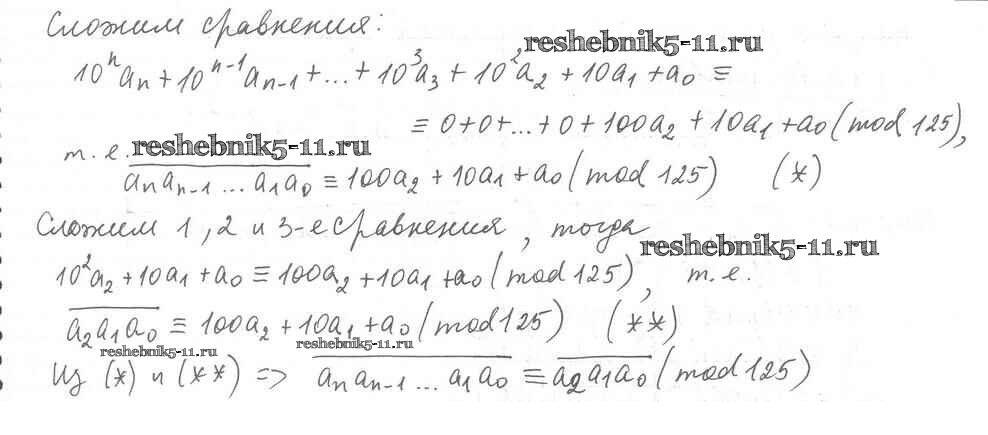 Сложим сравнения:
reshebnik5-11.ru
10ⁿaₙ + 10ⁿ⁻¹aₙ₋₁ + ... + 10³a₃ + 10²a₂ + 10a₁ + a₀ ≡
≡ 0+0+...+0+100a₂ + 10a₁ + a₀ (mod 125),
т. е. reshebnik5-11.ru
aₙaₙ₋₁...a₁a₀ ≡ 100a₂ + 10a₁ + a₀ (mod 125) (*)
Сложим 1, 2 и 3-е сравнения, тогда
reshebnik5-11.ru
10²a₂ + 10a₁ + a₀ ≡ 100a₂ + 10a₁ + a₀ (mod 125), т. е.
a₂a₁a₀ ≡ 100a₂ + 10a₁ + a₀ (mod 125) (**)
reshebnik5-11.ru reshebnik5-11.ru
Из (*) и (**) => aₙaₙ₋₁...a₁a₀ ≡ a₂a₁a₀ (mod 125)